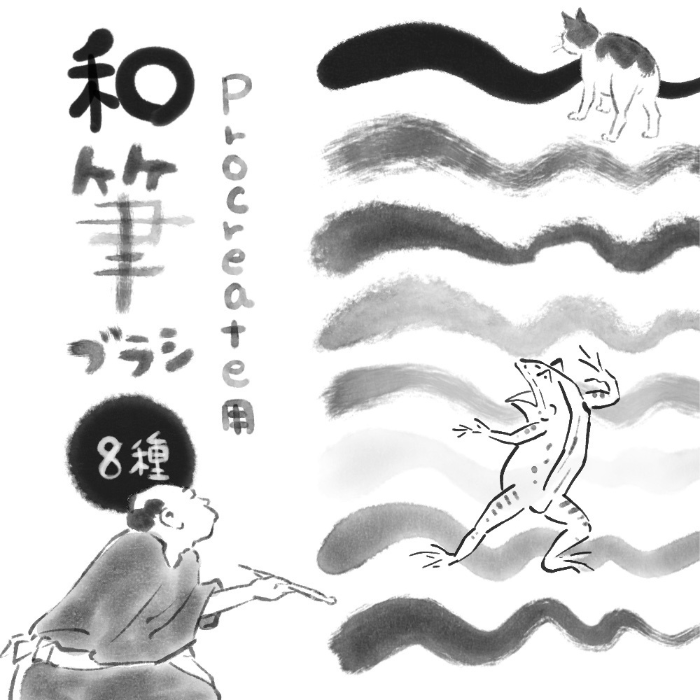 和筆ブラシ
Procreate用
8種